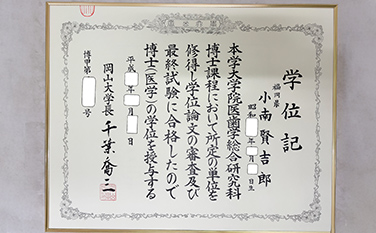 学位記
福岡県
小南賢吉郎
昭和 年 月 日生
本学大学院医歯学総合研究科
博士課程において所定の単位を
修得し学位論文の審査及び
最終試験に合格したので
博士(医学)の学位を授与する
平成 年 月 日
岡山大学長 千葉喬三
博甲第 号